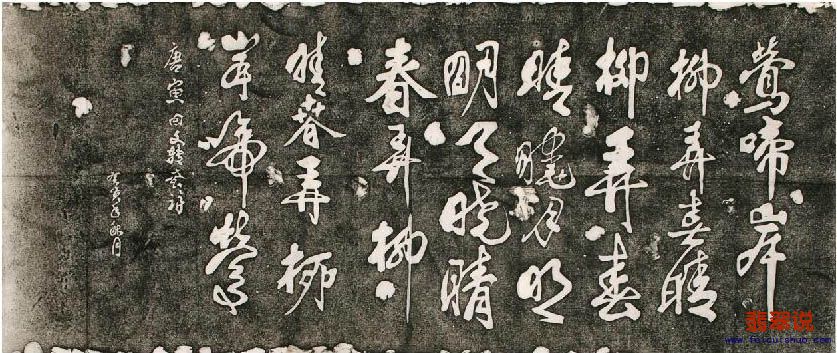 鶯啼岸
柳弄春晴
柳弄春
晴曉月明
明月晓晴
春弄柳
晴春弄柳
岸啼鶯
唐寅回文
翡翠说
www.feicuishuo.com